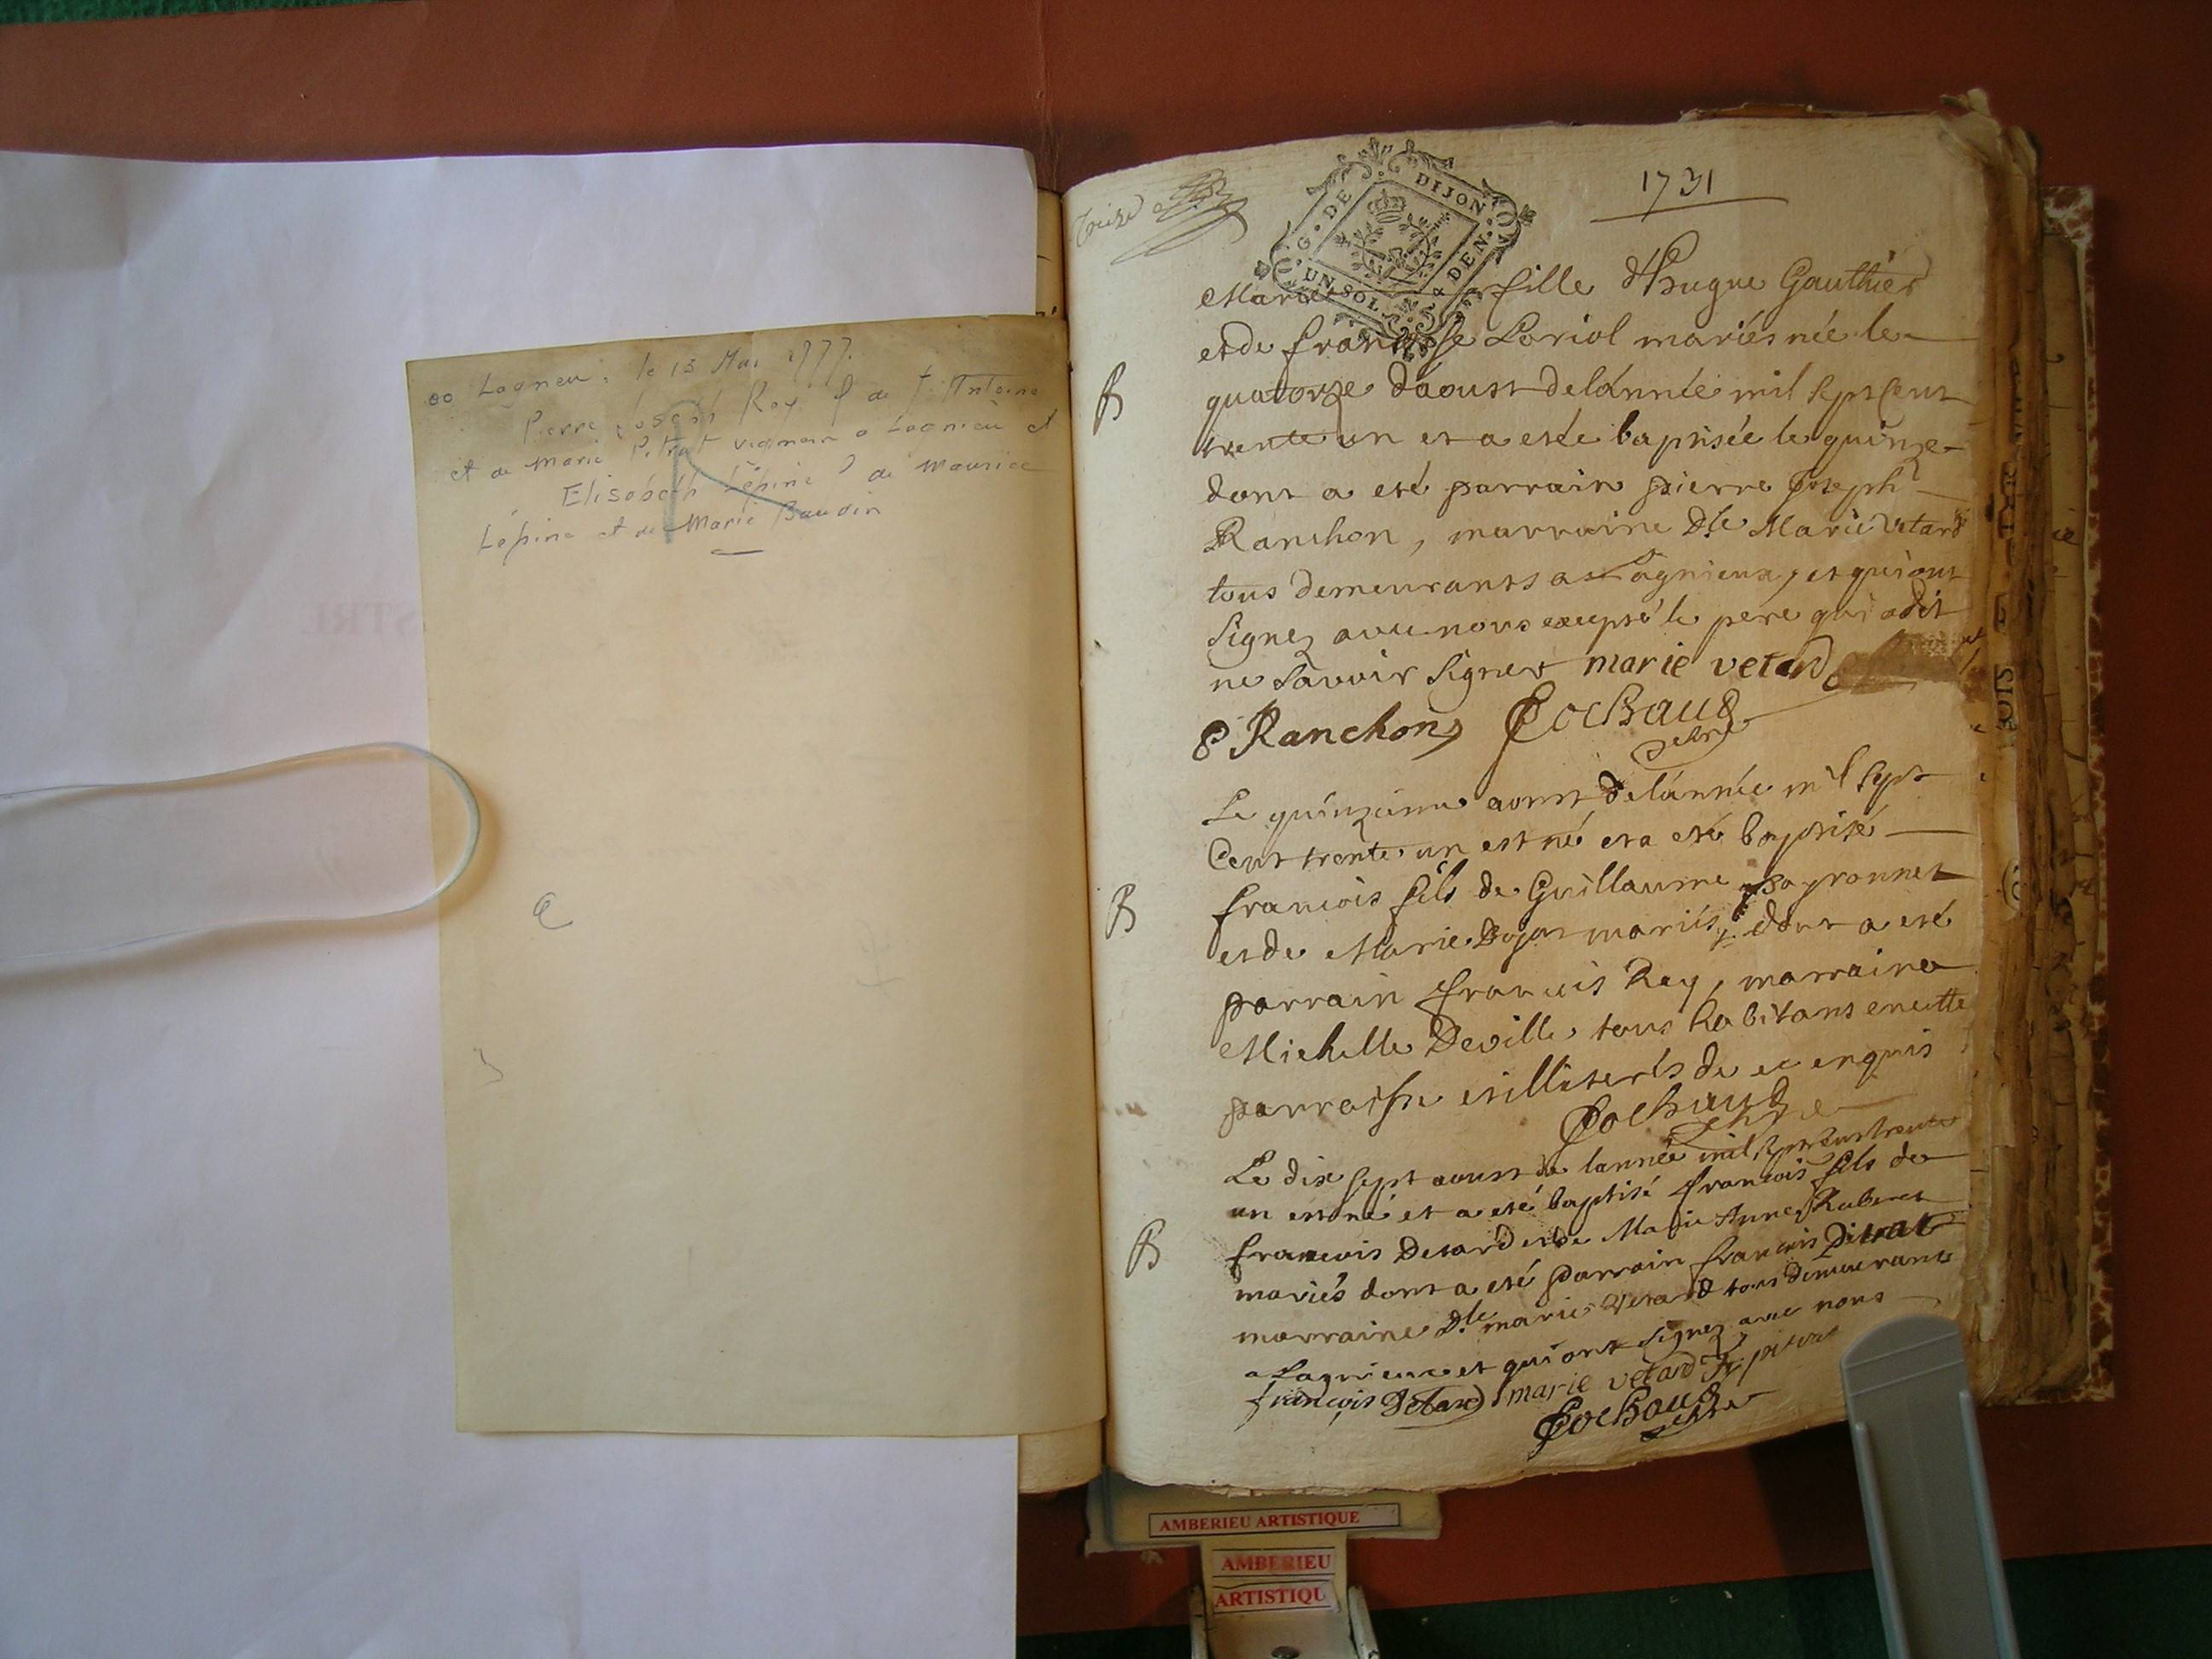 oo Lagneu. le 13 Mai 1777.
Pierre Joseph Rey f de f. Antoine
et de Marie Pitrat vigneron a Lagnieu et
Elisabeth Lépine f de Maurice
Lépine et de Marie Baudin
1731
G. DE DIJON
UN SOL 4 DEN.
Marie fille d'hugue Gauthier
et de francoise Loriol mariés née le
B
quatorze d'aoust de lánnée mil sept cent
trente un et a esté baptisée le quinze
dont a eté parrain pierre Joseph
Ranchon, marraine Dle Marie Vetard
tous demeurants a Lagnieux, et qui ont
signez avec nous excepté le pere qui a dit
ne savoir signer marie vetard
P Ranchon Cochaud
Le quinzieme aoust de lánnée mil sept
Cent trente un est né et a eté baptisé
B
francois fils de Guillaume payronnet
et de Marie mariés, dont a eté
parrain francois Rey, marraine
Michelle Deville tous habitans en cette
parroisse et illiterés de ce enquis
Cochaud
Le dix sept aoust de lannée mil sept cent trente
un est né et a eté baptisé francois fils de
B
francois Detard et de Marie Anne
mariés dont a eté parrain francois Pitrat
marraine Dle marie Vetard tous demeurants
a Lagnieux et qui ont signez avec nous
françois Detard marie vetard fr. pitrat
Cochaud
AMBERIEU ARTISTIQUE
AMBERIEU
ARTISTIQU